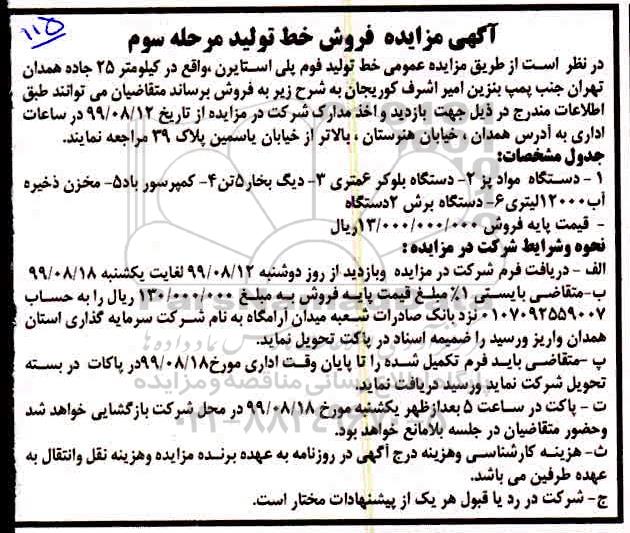 ۱۱۵
آگهی مزایده فروش خط تولید مرحله سوم
در نظر است از طریق مزایده عمومی خط تولید فوم پلی استایرن ،واقع در کیلومتر ۲۵ جاده همدان
تهران جنب پمپ بنزین امیر اشرف کوریجان به شرح زیر به فروش برساند متقاضیان می توانند طبق
اطلاعات مندرج در ذیل جهت بازدید و اخذ مدارک شرکت در مزایده از تاریخ ۹۹/۰۸/۱۲ در ساعات
اداری به آدرس همدان ، خیابان هنرستان ، بالاتر از خیابان یاسمین پلاک ۳۹ مراجعه نمایند.
جدول مشخصات:
۱ - دستگاه مواد پز ۲- دستگاه بلوکر ۶متری ۳- دیگ بخار۵تن۴- کمپرسور باد۵- مخزن ذخیره
آب۱۲۰۰۰لیتری۶- دستگاه برش ۲دستگاه
- قیمت پایه فروش ۱۳/۰۰۰/۰۰۰/۰۰۰ریال
نحوه وشرایط شرکت در مزایده :
الف - دریافت فرم شرکت در مزایده وبازدید از روز دوشنبه ۹۹/۰۸/۱۲ لغایت یکشنبه ۹۹/۰۸/۱۸
ب-متقاضی بایستی ۱٪ مبلغ قیمت پایه فروش به مبلغ ۱۳۰/۰۰۰/۰۰۰ ریال را به حساب
۰۱۰۷۰۹۲۵۵۹۰۰۷ نزد بانک صادرات شعبه میدان آرامگاه به نام شرکت سرمایه گذاری استان
همدان واریز ورسید را ضمیمه اسناد در پاکت تحویل نماید.
پ -متقاضی باید فرم تکمیل شده را تا پایان وقت اداری مورخ۹۹/۰۸/۱۸در پاکات در بسته
تحویل شرکت نماید ورسید دریافت نماید.
ت - پاکت در ساعت ۵ بعدازظهر یکشنبه مورخ ۹۹/۰۸/۱۸ در محل شرکت بازگشایی خواهد شد
وحضور متقاضیان در جلسه بلامانع خواهد بود.
ث- هزینه کارشناسی وهزینه درج آگهی در روزنامه به عهده برنده مزایده وهزینه نقل وانتقال به
عهده طرفین می باشد.
ج- شرکت در رد یا قبول هر یک از پیشنهادات مختار است.